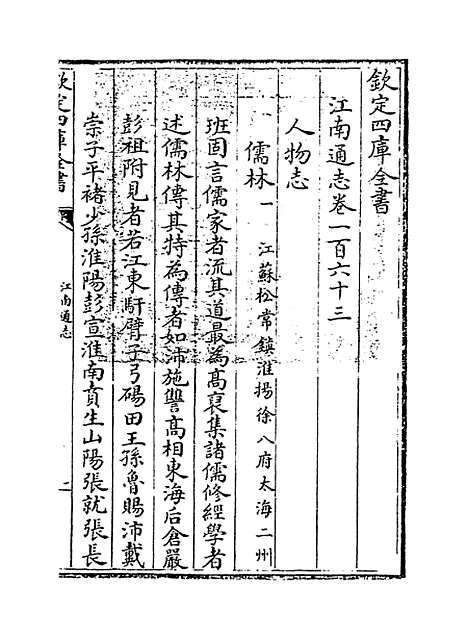 欽定四庫全書
江南通志卷一百六十三
人物志
儒林一 江蘇松常鎮淮揚徐八府太海二州
班固言儒家者流其道最為高裒集諸儒修經學者
述儒林傳其特為傳者如沛施讐高相東海后倉嚴
彭祖附見者若江東馯臂子弓碭田王孫魯賜沛戴
崇子平褚少孫淮陽彭宣淮南賁生山陽張就張長
欽定四庫全書
江南通志